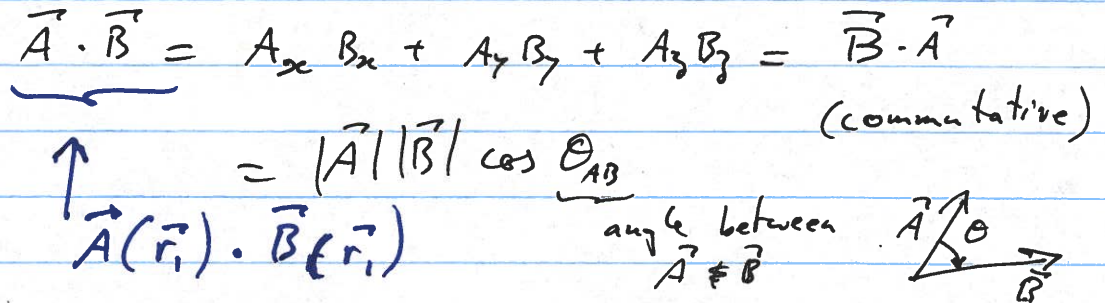 A⃗ · B⃗ = AₓBₓ + A_y B_y + A_z B_z = B⃗ · A⃗
(commutative)
= |A⃗| |B⃗| cos θ_AB
A⃗(r⃗₁) · B⃗(r⃗₁)
angle between
A⃗ & B⃗
A⃗ θ
B⃗